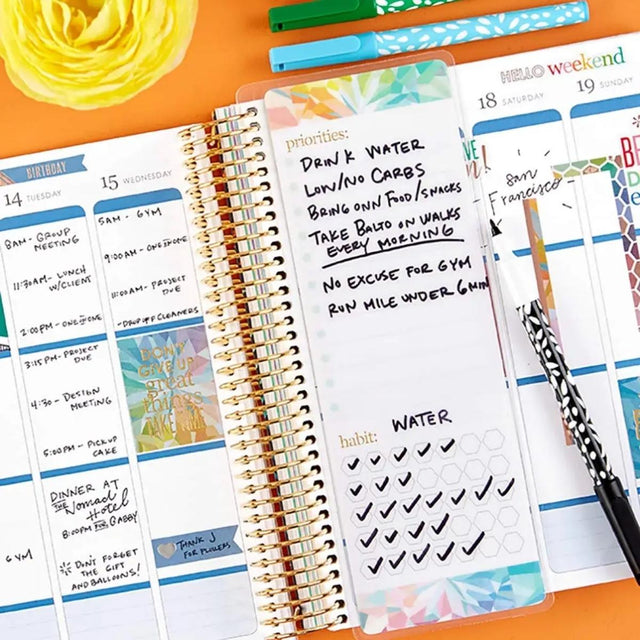 BIRTHDAY
14 TUESDAY
8AM - GROUP
MEETING
11:30AM - LUNCH
W/CLIENT
2:00PM - ONE ON ONE
3:15PM - PROJECT
DUE
4:30 - DESIGN
MEETING
5:00PM - PICKUP
CAKE
DINNER AT
THE Nomad
Hotel
8:00PM FOR GABBY
DON'T FORGET
THE GIFT
AND BALLOONS!
GYM
15 WEDNESDAY
5AM - GYM
9:00AM - ONE ON ONE
11:00AM - PROJECT
DUE
- DROP OFF CLEANERS
DON'T
GIVE UP
great
things
TAKE TIME
THANK J
FOR FLOWERS
priorities:
DRINK WATER
LOW/NO CARBS
BRING OWN FOOD/SNACKS
TAKE BALTO ON WALKS
EVERY MORNING
NO EXCUSE FOR GYM
RUN MILE UNDER 6 MIN
WATER
habit:
HELLO weekend
18 SATURDAY
San
Francisco
19 SUNDAY